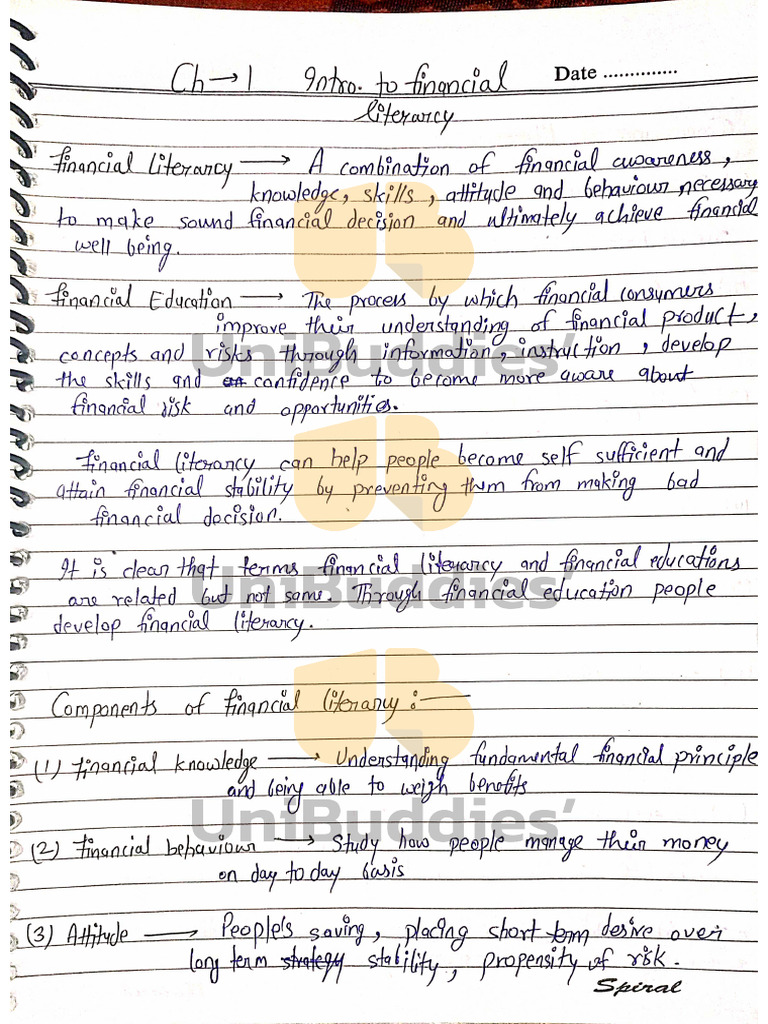 Ch → 1 Intro. to financial Date ..............
literarcy
Financial Literarcy → A combination of financial awareness,
knowledge, skills, attitude and behaviour necessary
to make sound financial decision and ultimately achieve financial
well being.
Financial Education → The process by which financial consumers
improve their understanding of financial product,
concepts and risks through information, instruction, develop
the skills and confidence to become more aware about
financial risk and opportunities.
Financial literarcy can help people become self sufficient and
attain financial stability by preventing them from making bad
financial decision.
It is clear that terms financial literarcy and financial educations
are related but not same. Through financial education people
develop financial literarcy.
Components of financial literarcy :—
(1) Financial knowledge → Understanding fundamental financial principle
and being able to weigh benefits
(2) Financial behaviour → Study how people manage their money
on day to day basis
(3) Attitude → People's saving, placing short term desire over
long term strategy stability, propensity of risk.
Spiral
UniBuddies'
UniBuddies'
UniBuddies'